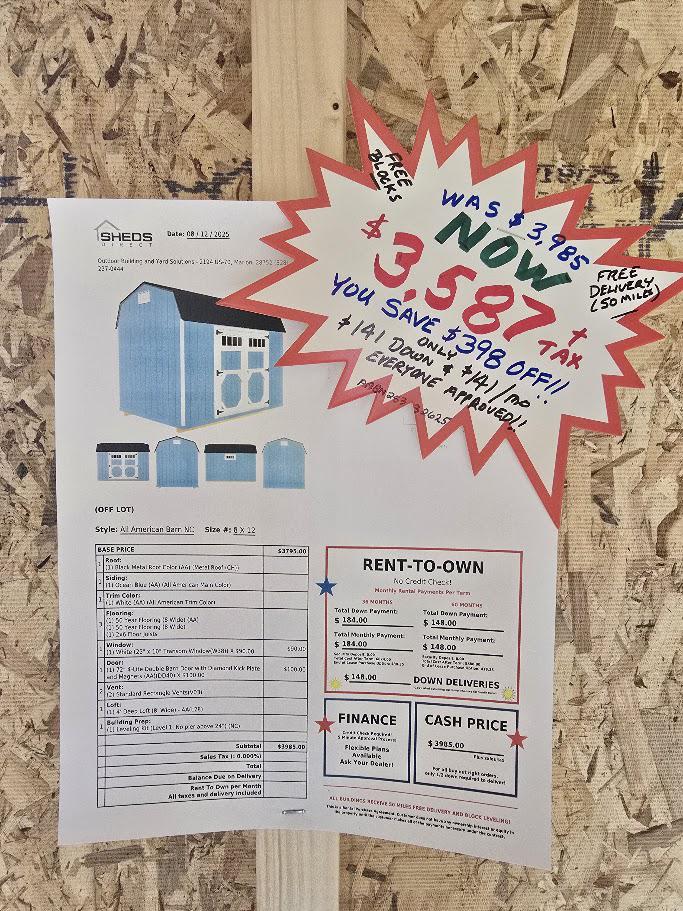 FREE
BLOCKS
WAS $3,985
NOW
$3,587 + TAX
YOU SAVE $398 OFF!!
ONLY
$141 DOWN & $141/mo
EVERYONE APPROVED!!
FREE
DELIVERY
(50 MILES)
SHEDS
DIRECT
Date: 08 / 12 / 2025
Outdoor Building and Yard Solutions - 2124 US-70, Marion, 28752 (828)
237-0444
(OFF LOT)
Style: All American Barn NC Size #: 8 X 12
BASE PRICE $3795.00
Roof:
(1) Black Metal Roof Color (AA) (Metal Roof (CH))
Siding:
(1) Ocean Blue (AA) (All American Main Color)
Trim Color:
(1) White (AA) (All American Trim Color)
Flooring:
(1) 50 Year Flooring (8 Wide) (AA)
(1) 50 Year Flooring (8 Wide)
(1) 2x6 Floor Joists
Window:
$90.00
Door:
(1) 72" 4-Lite Double Barn Door with Diamond Kick Plate
$100.00
Vent:
(2) Standard Rectangle Vents
Loft:
(1) 4' Deep Loft (8' Wide)
Building Prep:
(1) Leveling Kit (Level 1: No pier above 24") (NC)
Subtotal $3985.00
Sales Tax (: 0.000%)
Total
Balance Due on Delivery
Rent To Own per Month
All taxes and delivery included
RENT-TO-OWN
No Credit Check!
Monthly Rental Payments Per Term
36 MONTHS 60 MONTHS
Total Down Payment: Total Down Payment:
$ 184.00 $ 148.00
Total Monthly Payment: Total Monthly Payment:
$ 184.00 $ 148.00
$ 148.00 DOWN DELIVERIES
FINANCE
Credit Check Required!
5 Minute Approval Process!
Flexible Plans
Available
Ask Your Dealer!
CASH PRICE
$ 3985.00
Plus sales tax
For all buy out right orders,
only 1/2 down required to deliver!
ALL BUILDINGS RECEIVE 50 MILES FREE DELIVERY AND BLOCK LEVELING!
This is a Rental Purchase Agreement. Customer does not have any ownership interest or equity in
the property until the customer makes all of the payments necessary under the contract.